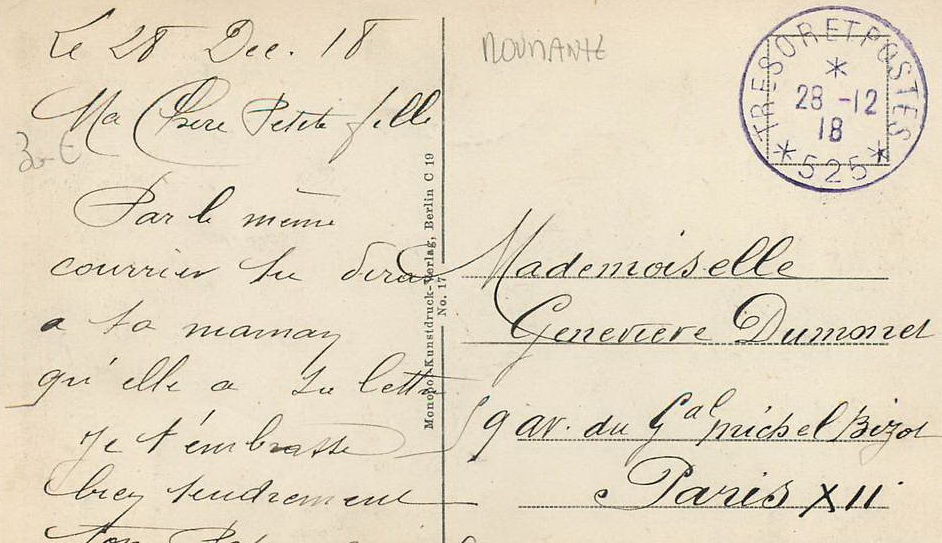 Le 28 Dec. 18
Ma Chere Petite fille
Par le même
courrier tu diras
a ta maman
qu'elle a sa lettre
Je t'embrasse
bien tendrement
ton
ROUMANIE
TRESOR ET POSTES
*
28 -12
18
* 525 *
Monopol-Kunstdruck-Verlag, Berlin C 19
No. 17
Mademoiselle
Genevieve Dumonet
9 av. du Gal Michel Bizot
Paris XII